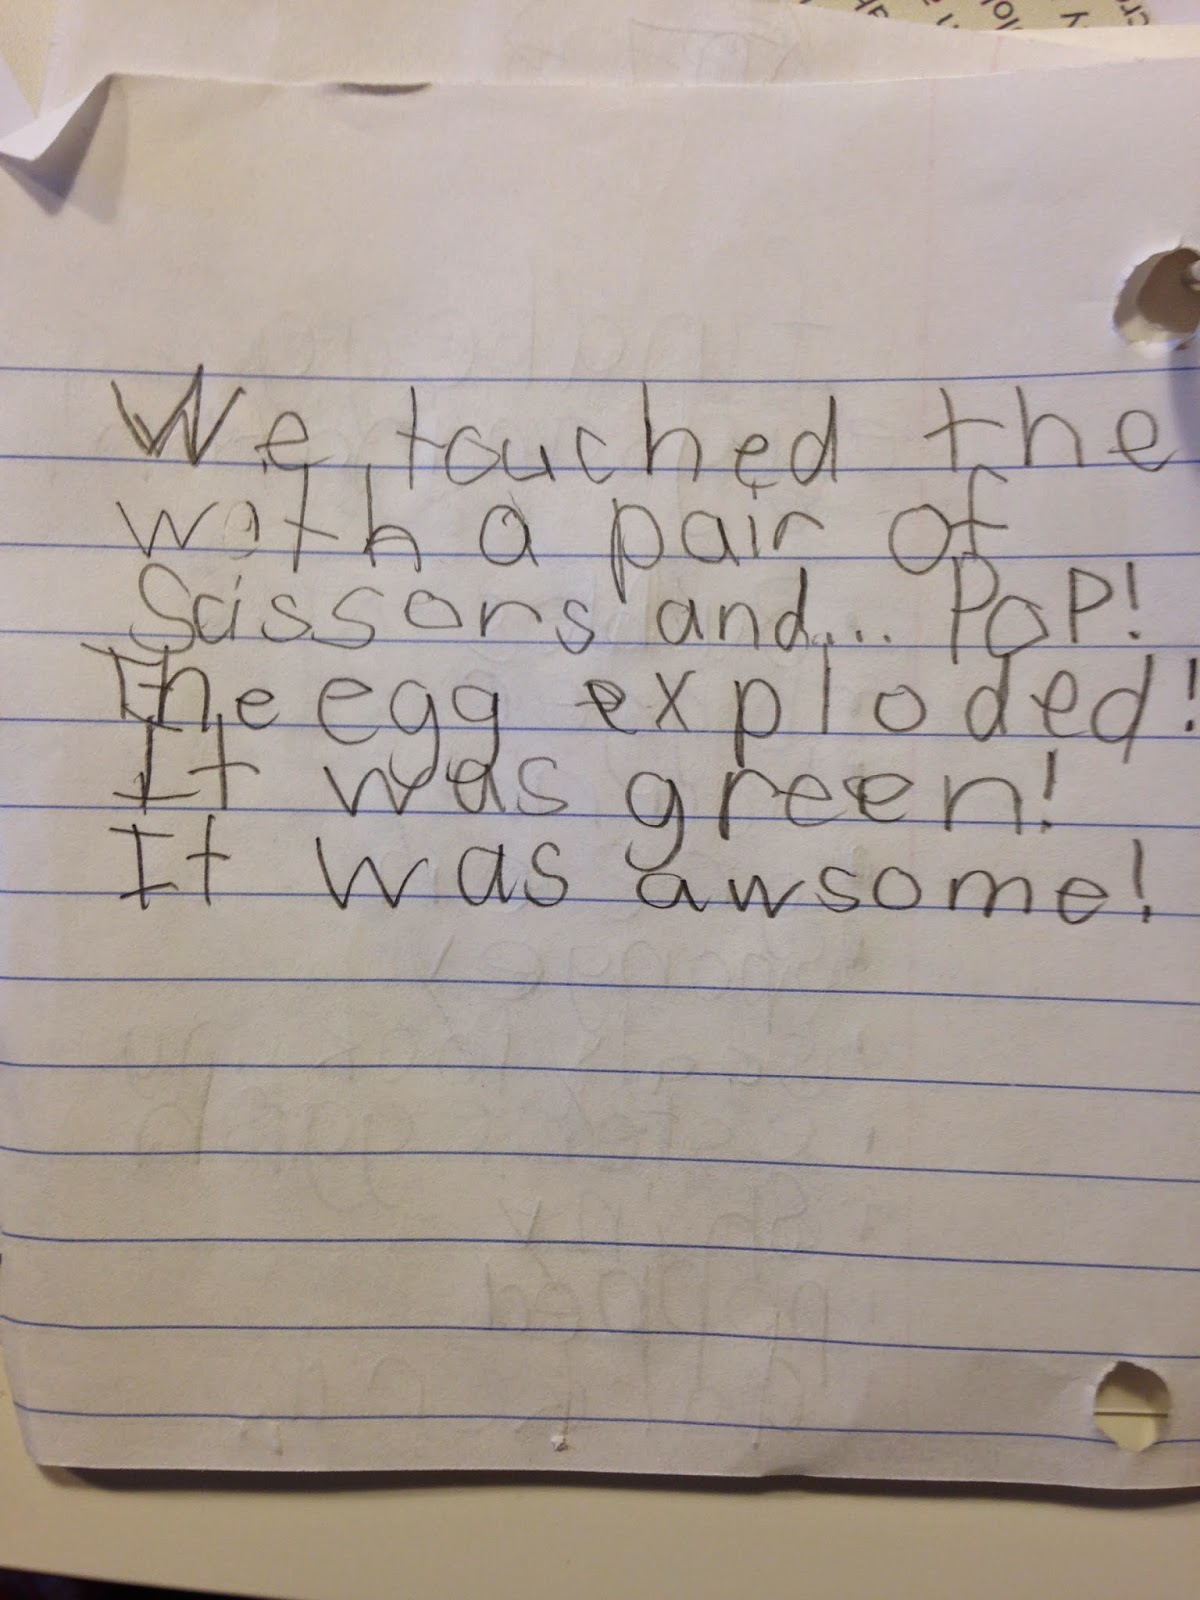 We touched the
with a pair of
Scissors and... PoP!
The egg exploded!
It was green!
It was awsome!